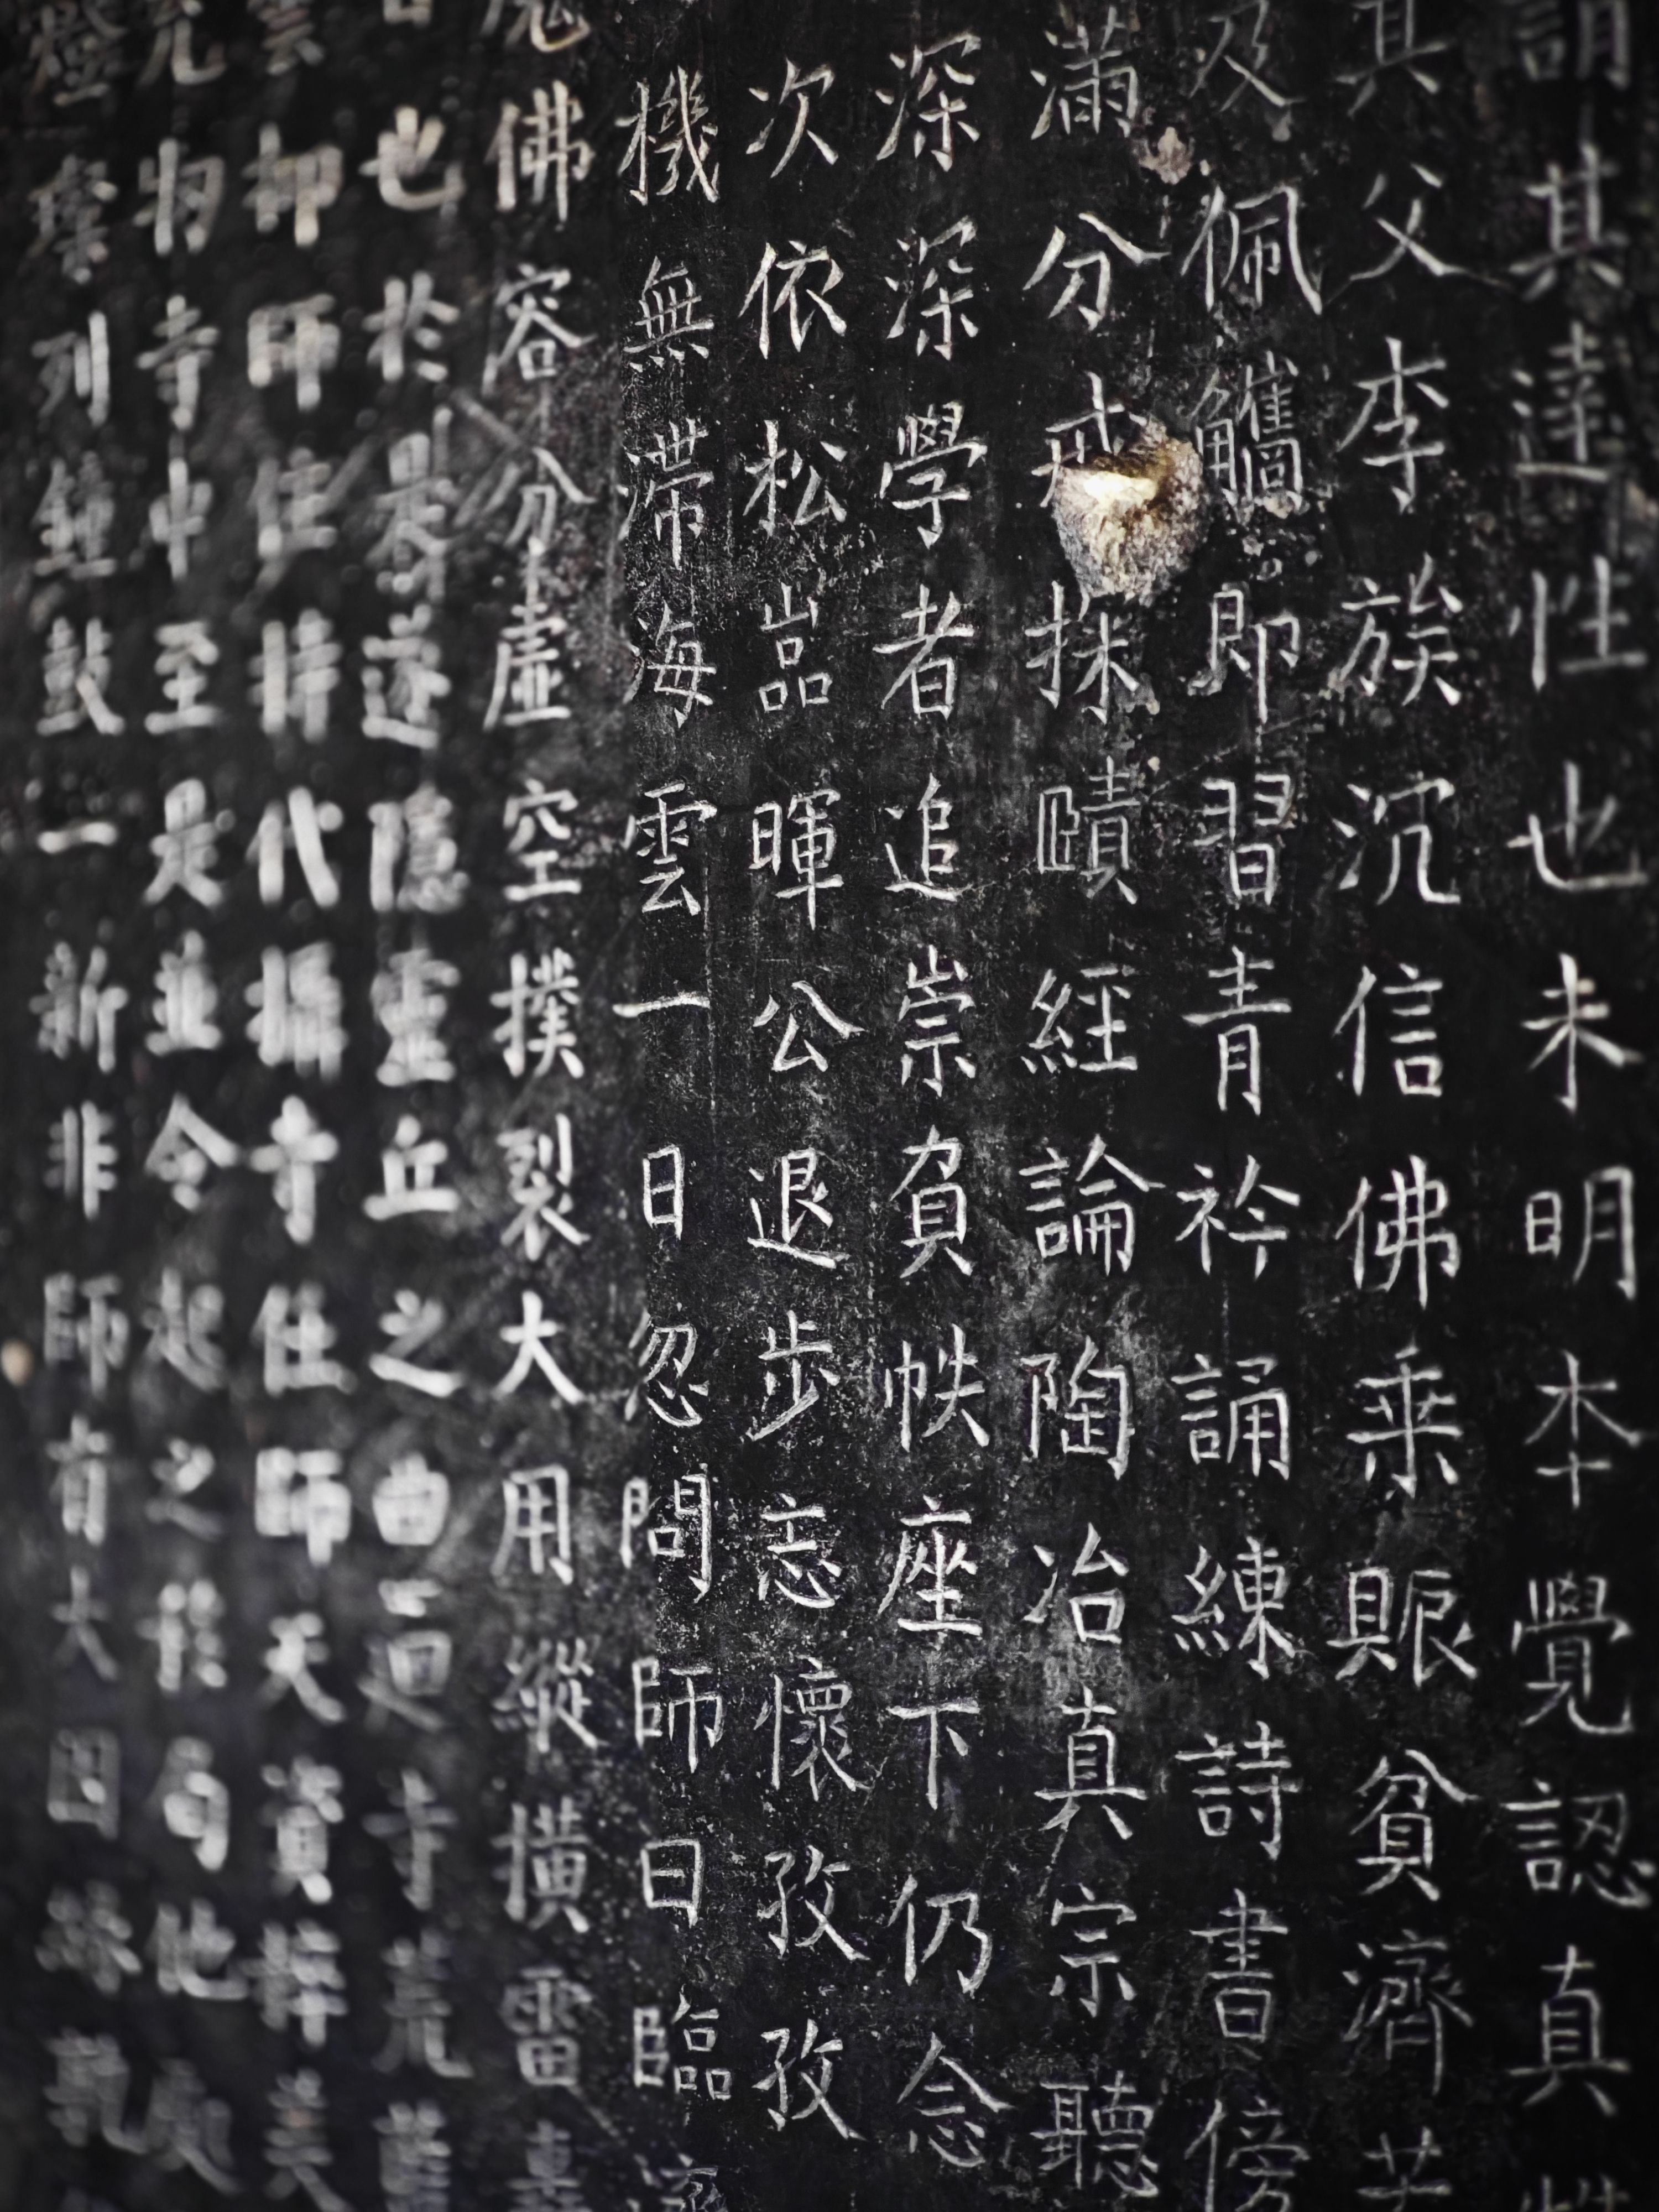 謂其達性也未明本覺認真
其父李族沉信佛乘賑貧濟苦
及佩觿即習青衿誦練詩書傍
滿分戒採賾經論陶冶真宗聽
深深學者追崇負帙座下仍念
次依松嵓暉公退步忘懷孜孜
機無滯海雲一日忽問師曰臨濟
佛容分虛空撲裂大用縱橫雷
也於是遂隱靈丘之曲回寺荒舊
柳師住持代攝寺住師天資粹美
物寺中至是並令起之後
列鐘鼓一新非師有大因